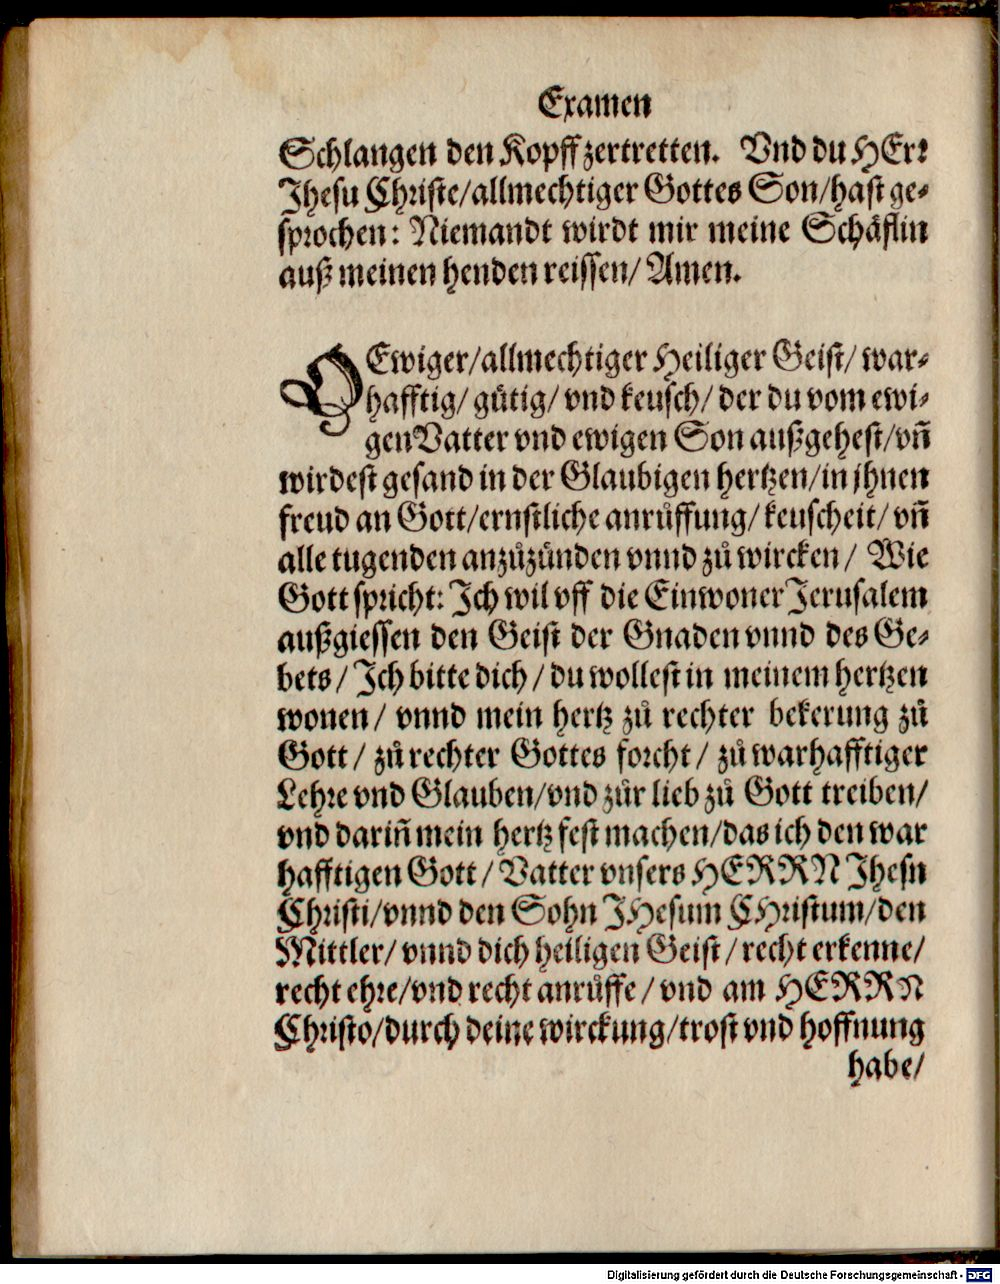 Examen
Schlangen den Kopff zertretten. Vnd du HErꝛ
Jhesu Christe/allmechtiger Gottes Son/hast ge⸗
sprochen: Niemandt wirdt mir meine Schäflin
auß meinen henden reissen/ Amen.
O Ewiger/allmechtiger Heiliger Geist/ war⸗
hafftig/ gütig/ vnd keusch/ der du vom ewi⸗
gen Vatter vnd ewigen Son außgehest/vñ
wirdest gesand in der Glaubigen hertzen/in jhnen
freud an Gott/ernstliche anrůffung/ keuscheit/ vñ
alle tugenden anzůzünden vnnd zů wircken/ Wie
Gott spricht: Ich wil vff die Einwoner Jerusalem
außgiessen den Geist der Gnaden vnnd des Ge⸗
bets/ Ich bitte dich/ du wollest in meinem hertzen
wonen/ vnnd mein hertz zů rechter bekerung zů
Gott/ zů rechter Gottes forcht/ zů warhafftiger
Lehre vnd Glauben/vnd zůr lieb zů Gott treiben/
vnd dariñ mein hertz fest machen/das ich den war
hafftigen Gott/ Vatter vnsers HERRN Jhesu
Christi/vnnd den Sohn JHesum CHristum/den
Mittler/ vnnd dich heiligen Geist/ recht erkenne/
recht ehre/vnd recht anrůffe/ vnd am HERRN
Christo/durch deine wirckung/trost vnd hoffnung
habe/
Digitalisierung gefördert durch die Deutsche Forschungsgemeinschaft - DFG